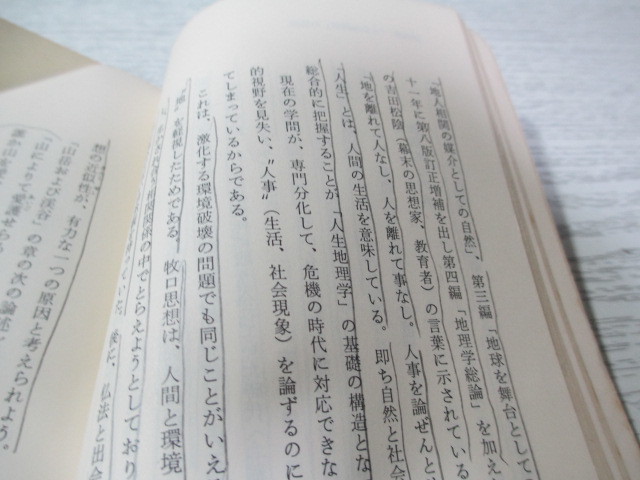 「地人相関の媒介としての自然」、第三編「地球を舞台としての
十一年に第八版訂正増補を出し第四編「地理学総論」を加え
の吉田松陰（幕末の思想家、教育者）の言葉に示されている
「地を離れて人なし、人を離れて事なし。人事を論ぜんと
「人生」とは、人間の生活を意味している。即ち自然と社会
総合的に把握することが「人生地理学」の基礎の構造とな
現在の学問が、専門分化して、危機の時代に対応できな
的視野を見失い、〝人事〟（生活、社会現象）を論ずるのに
てしまっているからである。
これは、激化する環境破壊の問題でも同じことがいえ
〝地〟を軽視したためである。牧口思想は、人間と環境
の中でとらえようとしており
後に、仏法と出会
想の近似性が、有力な一つの原因と考えられよう。
「山岳および渓谷」の章の次の論述に
「山によりて愛護せら